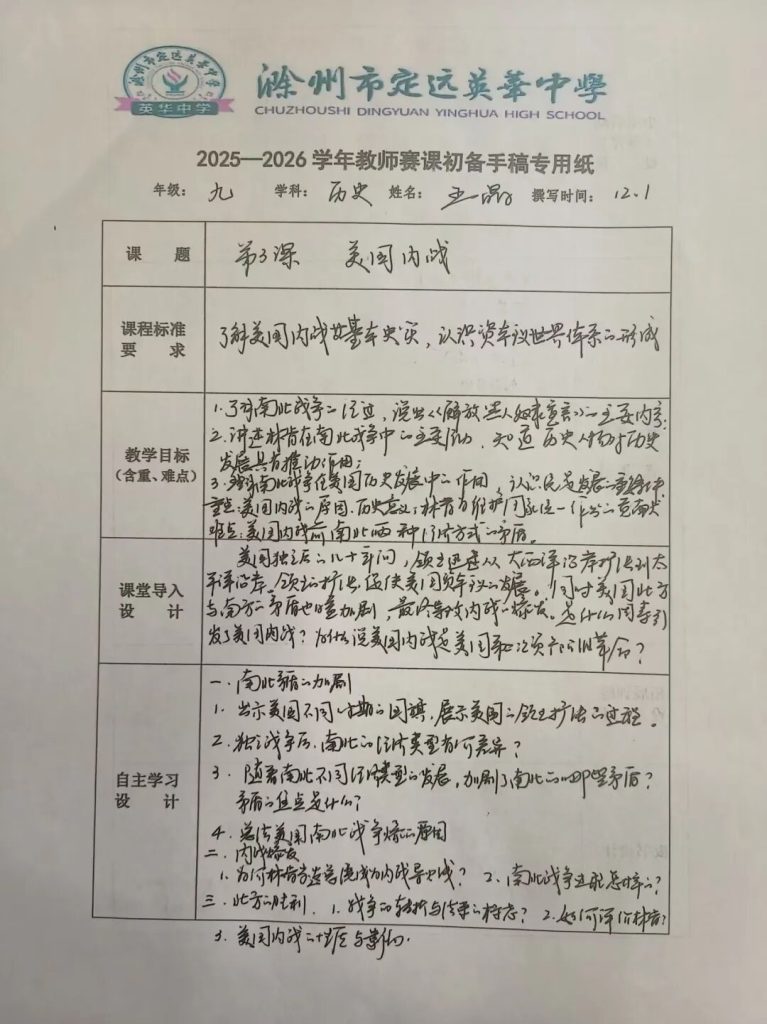 滁州市定远英华中学
英华中学
滁州市定远英華中學
CHUZHOUSHI DINGYUAN YINGHUA HIGH SCHOOL
2025—2026 学年教师赛课初备手稿专用纸
年级: 九 学科: 历史 姓名: 王晶 撰写时间: 12.1
课 题 第3课 美国内战
课程标准
要 求
了解美国内战的基本史实，认识资本主义世界体系的形成
教学目标
(含重、难点)
1.了解南北战争的经过，说出《解放黑人奴隶宣言》的主要内容;
2.讲述林肯在南北战争中的主要活动，知道历史人物对历史
发展具有推动作用;
3.理解南北战争在美国历史发展中的作用，认识
重点:美国内战的原因、历史意义;林肯为维护国家统一作出的贡献
难点:美国内战前南北两种经济方式的矛盾。
课堂导入
设 计
美国独立后的几十年间，领土迅速从大西洋沿岸扩张到太
平洋沿岸。领土的扩张促使美国资本主义的发展。同时美国北方
与南方的矛盾也日益加剧，最终导致内战的爆发。是什么因素引
发了美国内战？为什么说美国内战是美国第二次资产阶级革命？
自主学习
设 计
一、南北矛盾的加剧
1. 出示美国不同时期的国旗，展示美国的领土扩张的过程。
2. 独立战争后，南北的经济类型有何差异？
3. 随着南北不同经济类型的发展，加剧了南北的哪些矛盾？
矛盾的焦点是什么？
4. 总结美国南北战争爆发的原因
二、内战爆发
1. 为何林肯当选总统成为内战导火线？ 2. 南北战争过程怎样的？
三、北方的胜利 1. 战争的转折与结束的标志？ 2. 如何评价林肯？
3. 美国内战的性质与影响.